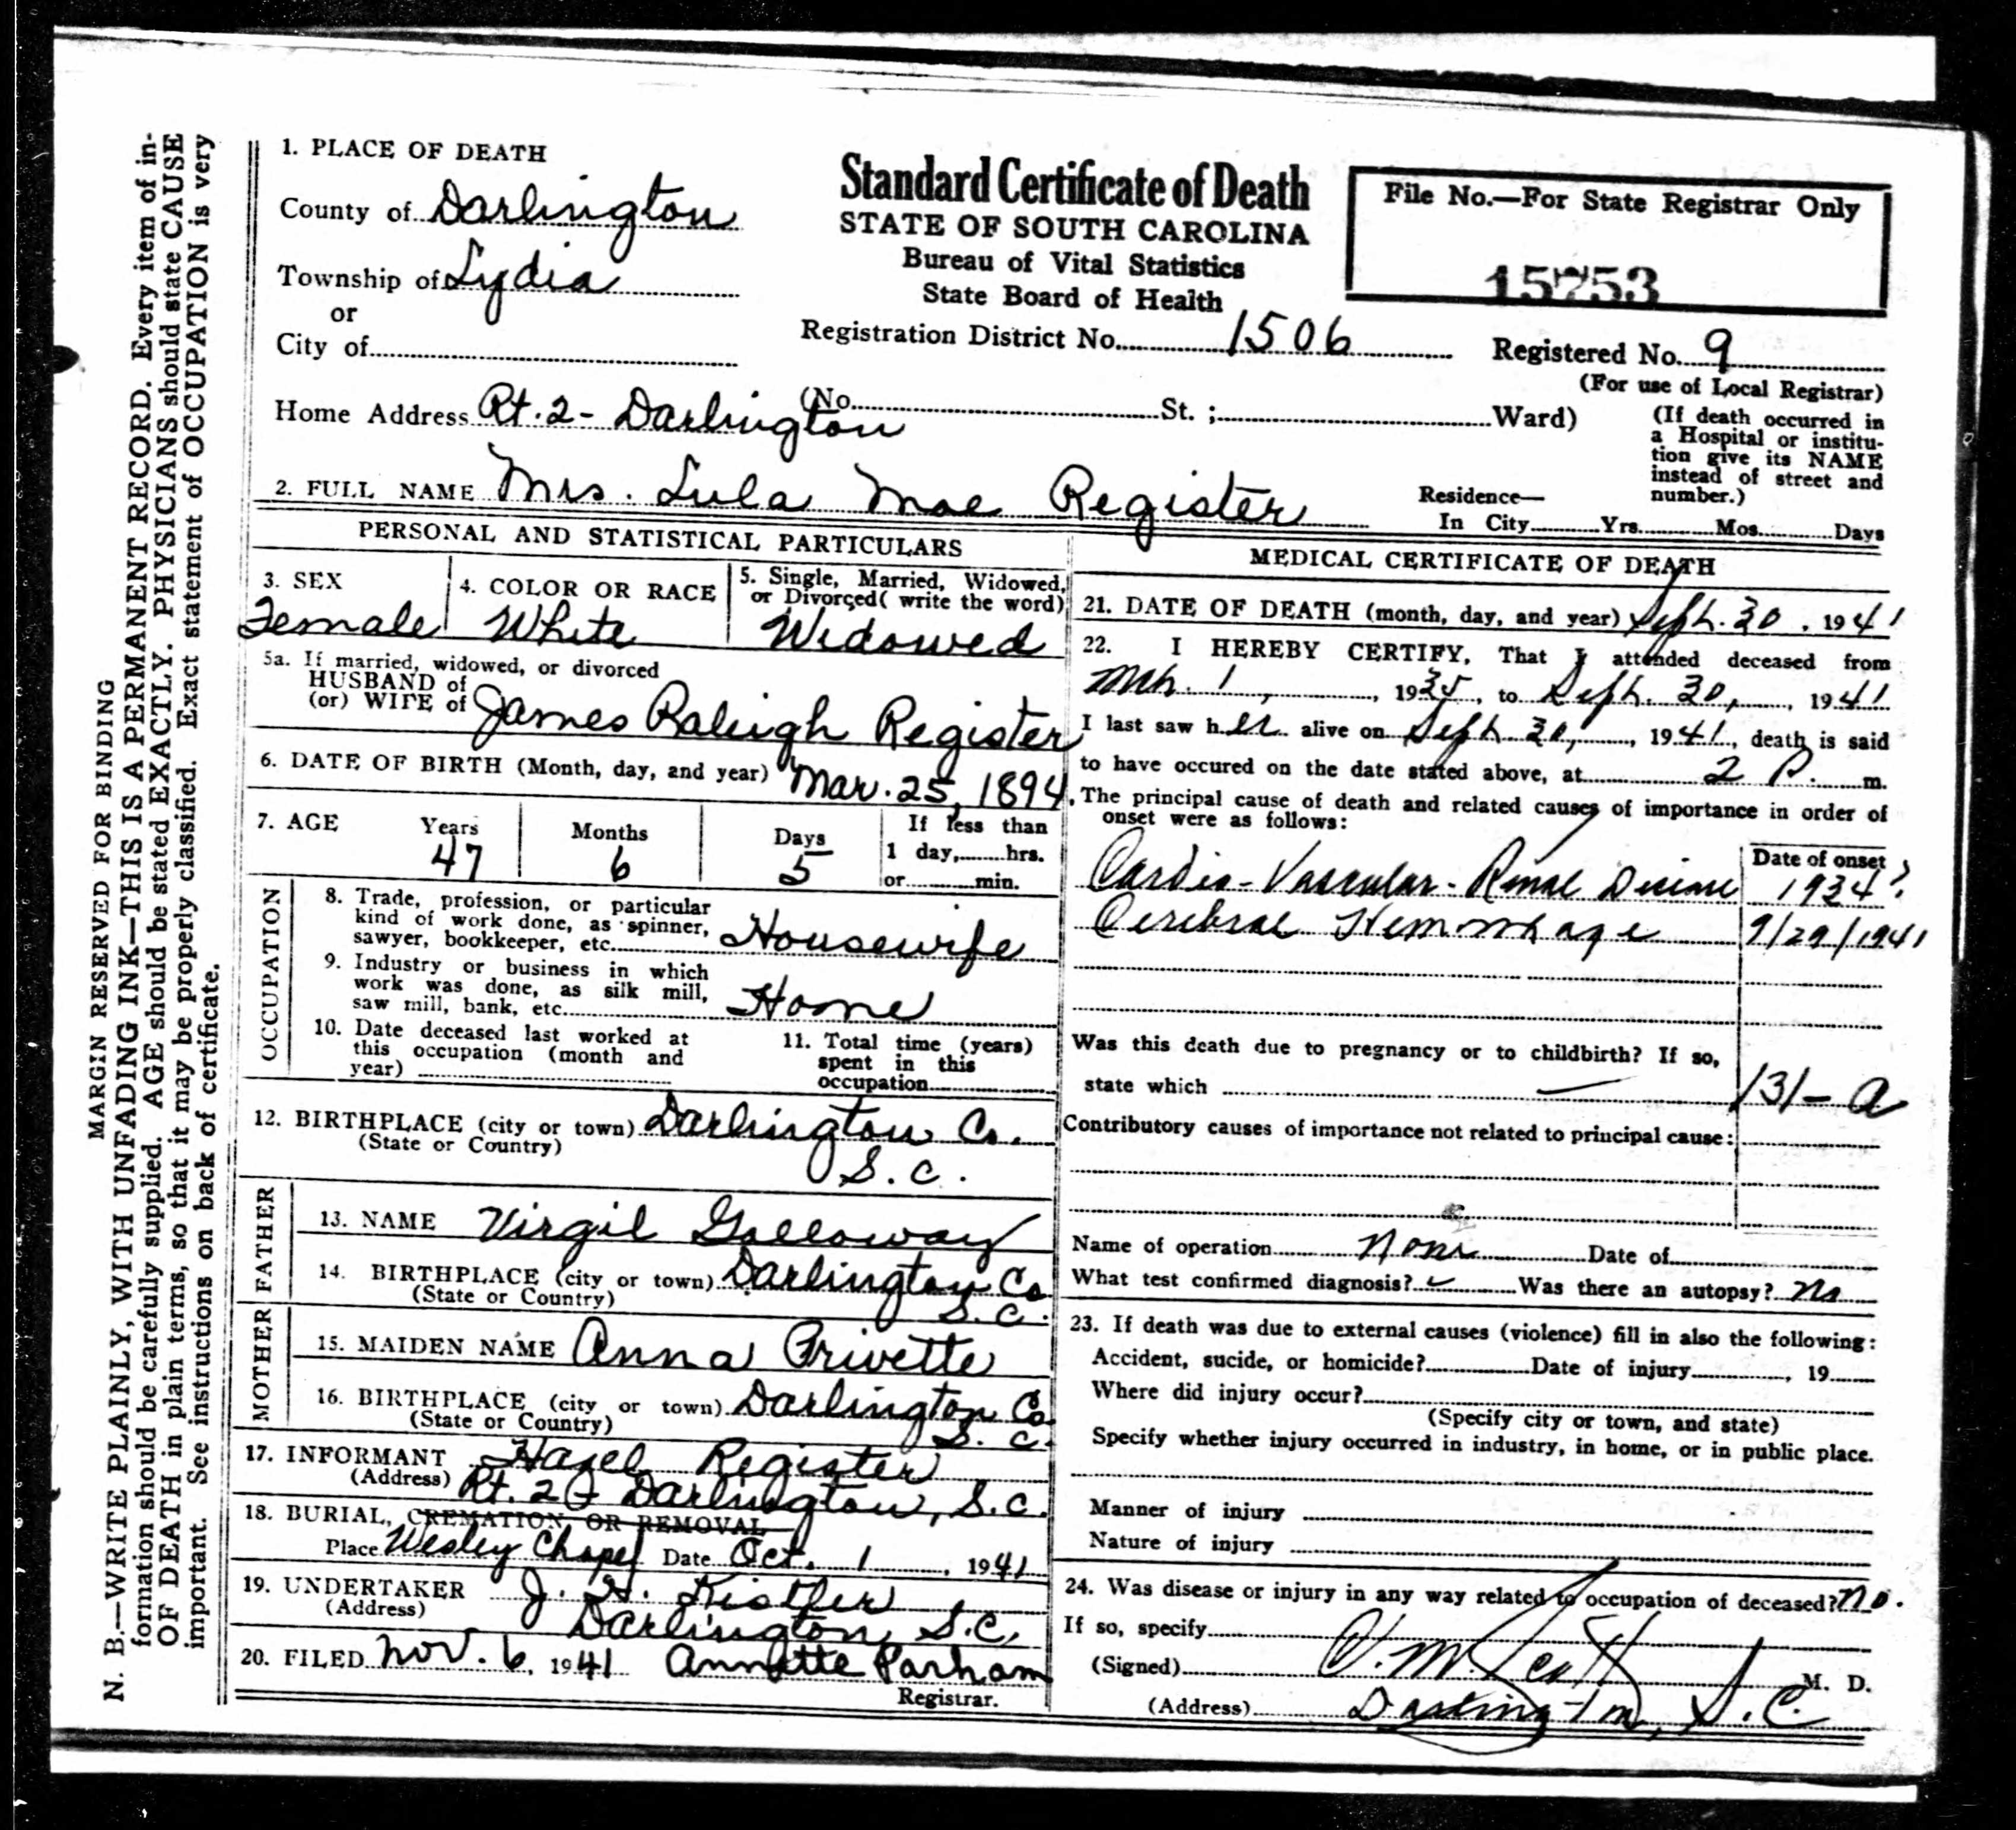 MARGIN RESERVED FOR BINDING
N. B.—WRITE PLAINLY, WITH UNFADING INK—THIS IS A PERMANENT RECORD. Every item of in-
formation should be carefully supplied. AGE should be stated EXACTLY. PHYSICIANS should state CAUSE
OF DEATH in plain terms, so that it may be properly classified. Exact statement of OCCUPATION is very
important. See instructions on back of certificate.
1. PLACE OF DEATH
County of Darlington
Township of Lydia
or
City of
Standard Certificate of Death
STATE OF SOUTH CAROLINA
Bureau of Vital Statistics
State Board of Health
File No.—For State Registrar Only
15753
Registration District No. 1506
Registered No. 9
(For use of Local Registrar)
Home Address Rt. 2 - Darlington
(No. St. ; Ward)
(If death occurred in
a Hospital or institu-
tion give its NAME
instead of street and
number.)
2. FULL NAME Mrs. Lula Mae Register
Residence—
In City Yrs. Mos. Days
PERSONAL AND STATISTICAL PARTICULARS
3. SEX
Female
4. COLOR OR RACE
White
5. Single, Married, Widowed,
or Divorced( write the word)
Widowed
5a. If married, widowed, or divorced
HUSBAND of
(or) WIFE of James Raleigh Register
6. DATE OF BIRTH (Month, day, and year) Mar. 25, 1894
7. AGE Years Months Days If less than
47 6 5 1 day, hrs.
or min.
OCCUPATION
8. Trade, profession, or particular
kind of work done, as spinner,
sawyer, bookkeeper, etc. Housewife
9. Industry or business in which
work was done, as silk mill,
saw mill, bank, etc. Home
10. Date deceased last worked at
this occupation (month and
year)
11. Total time (years)
spent in this
occupation
12. BIRTHPLACE (city or town) Darlington Co.
(State or Country) S. C.
FATHER
13. NAME Virgil Galloway
14. BIRTHPLACE (city or town) Darlington Co
(State or Country) S. C.
MOTHER
15. MAIDEN NAME Anna Privette
16. BIRTHPLACE (city or town) Darlington Co.
(State or Country) S. C.
17. INFORMANT Hazel Register
(Address) Rt. 2 Darlington, S. C.
18. BURIAL, CREMATION OR REMOVAL
Place Wesley Chapel Date Oct. 1, 1941
19. UNDERTAKER J. Kistler
(Address) Darlington, S.C.
20. FILED Nov. 6, 1941 Annette Parham
Registrar.
MEDICAL CERTIFICATE OF DEATH
21. DATE OF DEATH (month, day, and year) Sept. 30, 1941
22. I HEREBY CERTIFY, That I attended deceased from
Mch. 1, 1935, to Sept. 30, 1941
I last saw her alive on Sept 30, 1941, death is said
to have occured on the date stated above, at 2 P. m.
The principal cause of death and related causes of importance in order of
onset were as follows:
Date of onset
Cardio-Vascular-Renal Disease 1934?
Cerebral Hemorrhage 9/29/1941
Was this death due to pregnancy or to childbirth? If so,
state which —
131-a
Contributory causes of importance not related to principal cause:
Name of operation None Date of
What test confirmed diagnosis? Was there an autopsy? No
23. If death was due to external causes (violence) fill in also the following:
Accident, sucide, or homicide? Date of injury , 19
Where did injury occur?
(Specify city or town, and state)
Specify whether injury occurred in industry, in home, or in public place.
Manner of injury
Nature of injury
24. Was disease or injury in any way related to occupation of deceased? No.
If so, specify
(Signed) M. D.
(Address) Darlington, S. C.